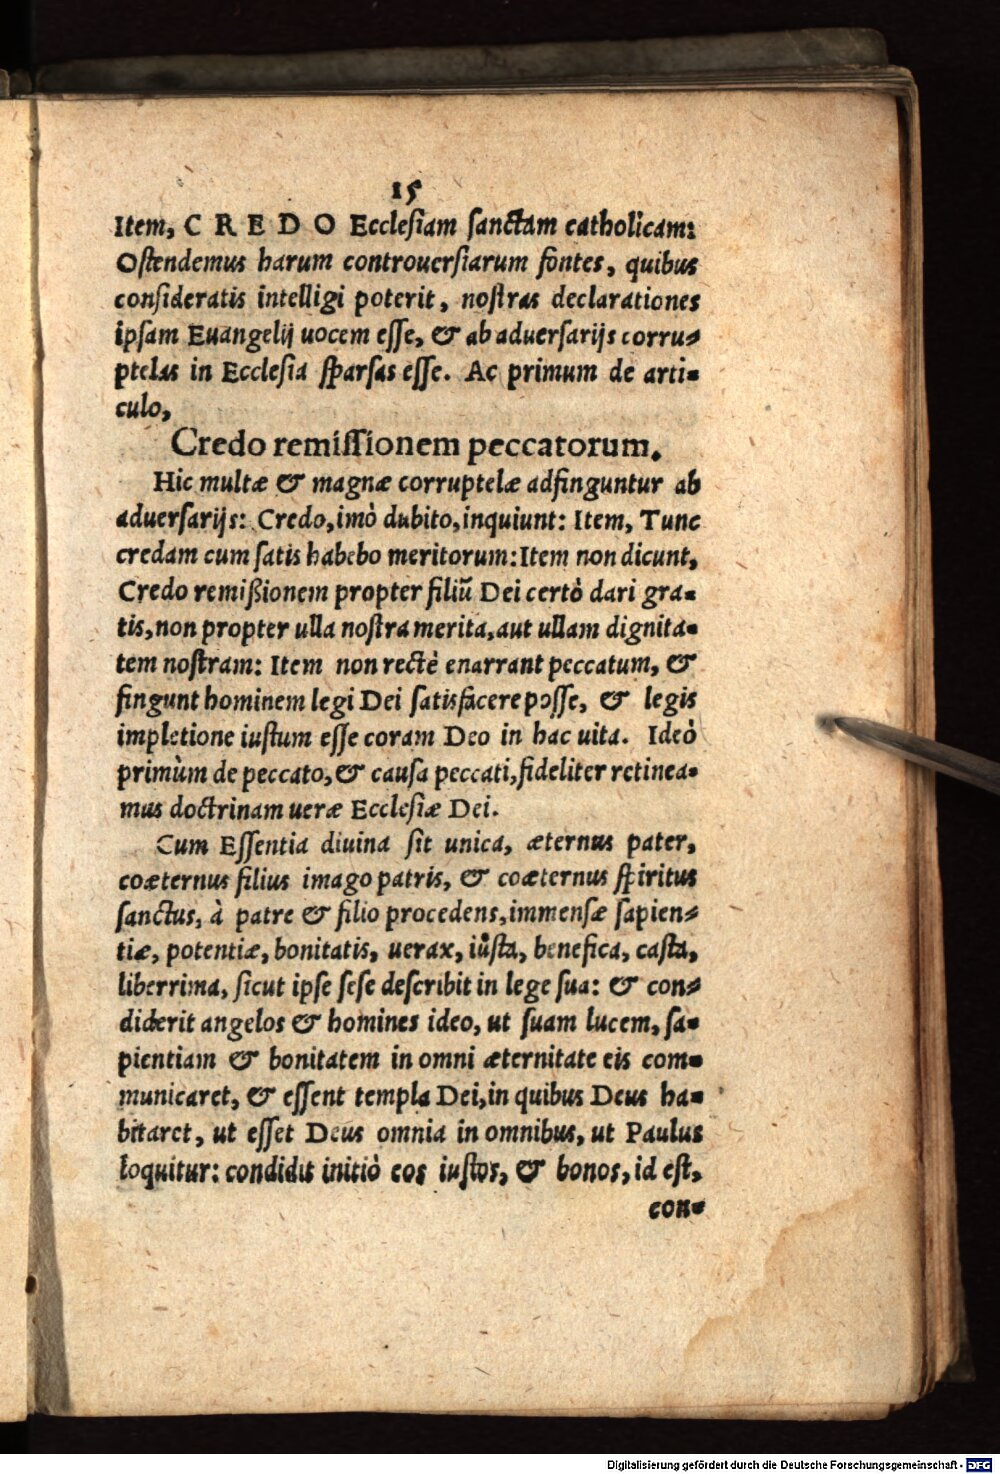 15
Item, CREDO Ecclesiam sanctam catholicam:
Ostendemus harum controuersiarum fontes, quibus
consideratis intelligi poterit, nostras declarationes
ipsam Euangelij uocem esse, & ab aduersarijs corru-
ptelas in Ecclesia sparsas esse. Ac primum de arti-
culo,
Credo remissionem peccatorum.
Hic multæ & magnæ corruptelæ adfinguntur ab
aduersarijs: Credo, imò dubito, inquiunt: Item, Tunc
credam cum satis habebo meritorum: Item non dicunt,
Credo remißionem propter filiũ Dei certò dari gra-
tis, non propter ulla nostra merita, aut ullam dignita-
tem nostram: Item non rectè enarrant peccatum, &
fingunt hominem legi Dei satisfacere posse, & legis
impletione iustum esse coram Deo in hac uita. Ideò
primùm de peccato, & causa peccati, fideliter retinea-
mus doctrinam ueræ Ecclesiæ Dei.
Cum Essentia diuina sit unica, æternus pater,
coæternus filius imago patris, & coæternus spiritus
sanctus, à patre & filio procedens, immensæ sapien-
tiæ, potentiæ, bonitatis, uerax, iusta, benefica, casta,
liberrima, sicut ipse sese describit in lege sua: & con-
diderit angelos & homines ideo, ut suam lucem, sa-
pientiam & bonitatem in omni æternitate eis com-
municaret, & essent templa Dei, in quibus Deus ha-
bitaret, ut esset Deus omnia in omnibus, ut Paulus
loquitur: condidit initiò eos iustos, & bonos, id est,
con-
Digitalisierung gefördert durch die Deutsche Forschungsgemeinschaft - DFG